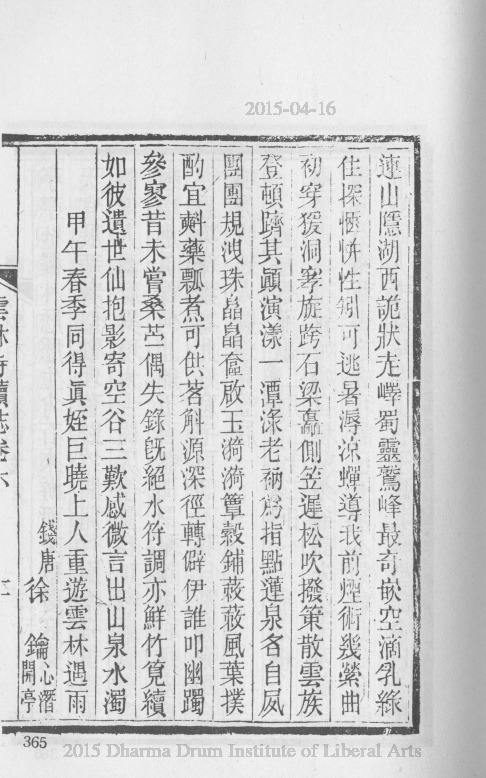 2015-04-16
連山隱湖西詭狀尤嶧蜀靈鷲峰最奇嵌空滴乳綠
住探愜恲性矧可逃暑溽涼蟬導我前煙術幾縈曲
初穿猨洞窅旋跨石梁矗側笠遲松吹撥策散雲族
登頓躋其顚演漾一潭淥老衲爲指點蓮泉名自夙
團團規洩珠皛皛奩啟玉漪漪簟縠鋪蔌蔌風葉撲
酌宜㪺藥瓢煮可供茗斛源深徑轉僻伊誰叩幽躅
參寥昔未嘗桑苎偶失錄旣絕水符調亦鮮竹筧續
如彼遺世仙抱影寄空谷三歎感微言出山泉水濁
甲午春季同得眞姪巨曉上人重遊雲林遇雨
錢唐 徐 鑰 心潛 開亭
雲林寺續誌卷六
365
2015 Dharma Drum Institute of Liberal Arts